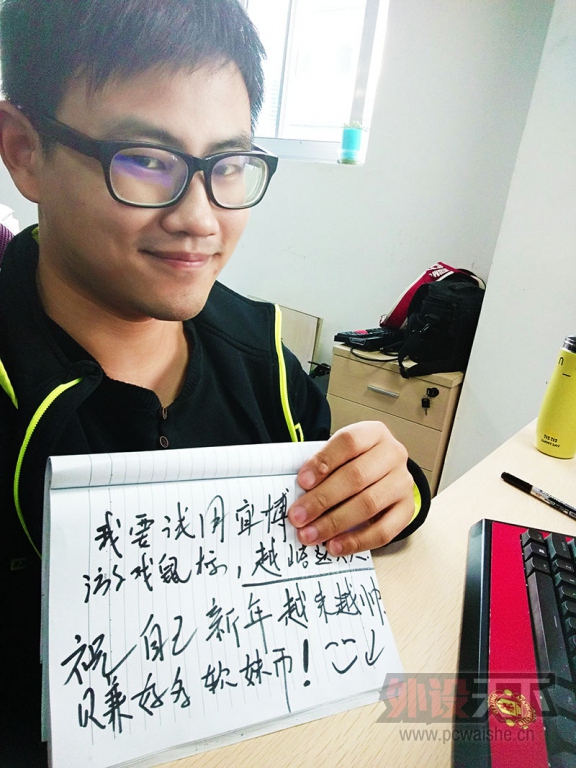 我要试用宜博
游戏鼠标，越
祝自己新年越来越帅
赚好多软妹币！
外设天下
www.pcwaishe.cn